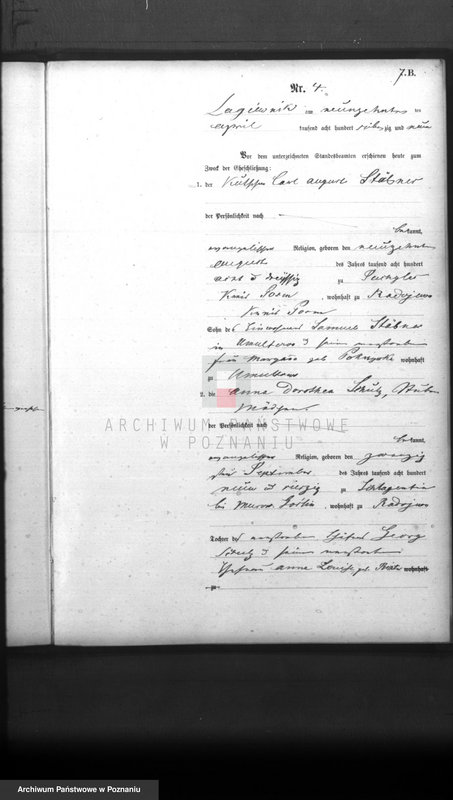 7.B.
Nr. 4.
Lagiewnik am neunzehnten ten
april tausend acht hundert siebenzig und neun
Vor dem unterzeichneten Standesbeamten erschienen heute zum
Zweck der Eheschließung:
1. der Kutscher Carl August Stäbner
der Persönlichkeit nach
bekannt,
evangelischer Religion, geboren den neunzehnten
August des Jahres tausend acht hundert
acht u dreißig zu
Kreis Posen, wohnhaft zu Radojewo
Kreis Posen
Sohn des Einwohners Samuel Stäbner
in Umultowo u seiner verstorbenen
Frau geb wohnhaft
zu Umultowo
2. die Anna Dorothea Schulz, Stuben
Mädchen
der Persönlichkeit nach
bekannt,
evangelischer Religion, geboren den zwanzig
sten September des Jahres tausend acht hundert
neun u vierzig zu
bei Murow. Goslin, wohnhaft zu Radojewo
Tochter des verstorbenen Georg
Schulz u seiner verstorbenen
Ehefrau Anne Louise geb wohnhaft
zu
ARCHIWUM PAŃSTWOWE
W POZNANIU
Archiwum Państwowe w Poznaniu